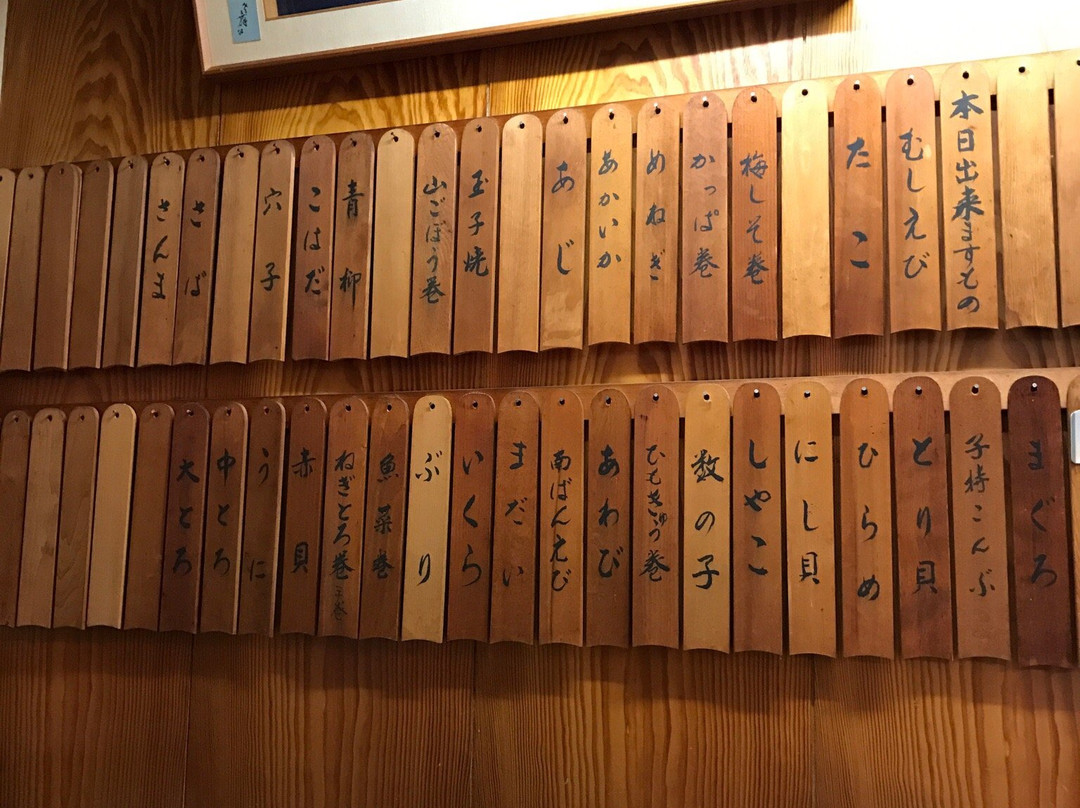 本日出来ますもの
むしえび
たこ
梅しそ巻
かっぱ巻
めねぎ
あかいか
あじ
玉子焼
山ごぼう巻
青柳
こはだ
穴子
さば
さんま
まぐろ
子持こんぶ
とり貝
ひらめ
にし貝
しゃこ
数の子
ひもきゅう巻
あわび
南ばんえび
まだい
いくら
ぶり
魚菜巻
ねぎとろ巻 手巻
赤貝
うに
中とろ
大とろ